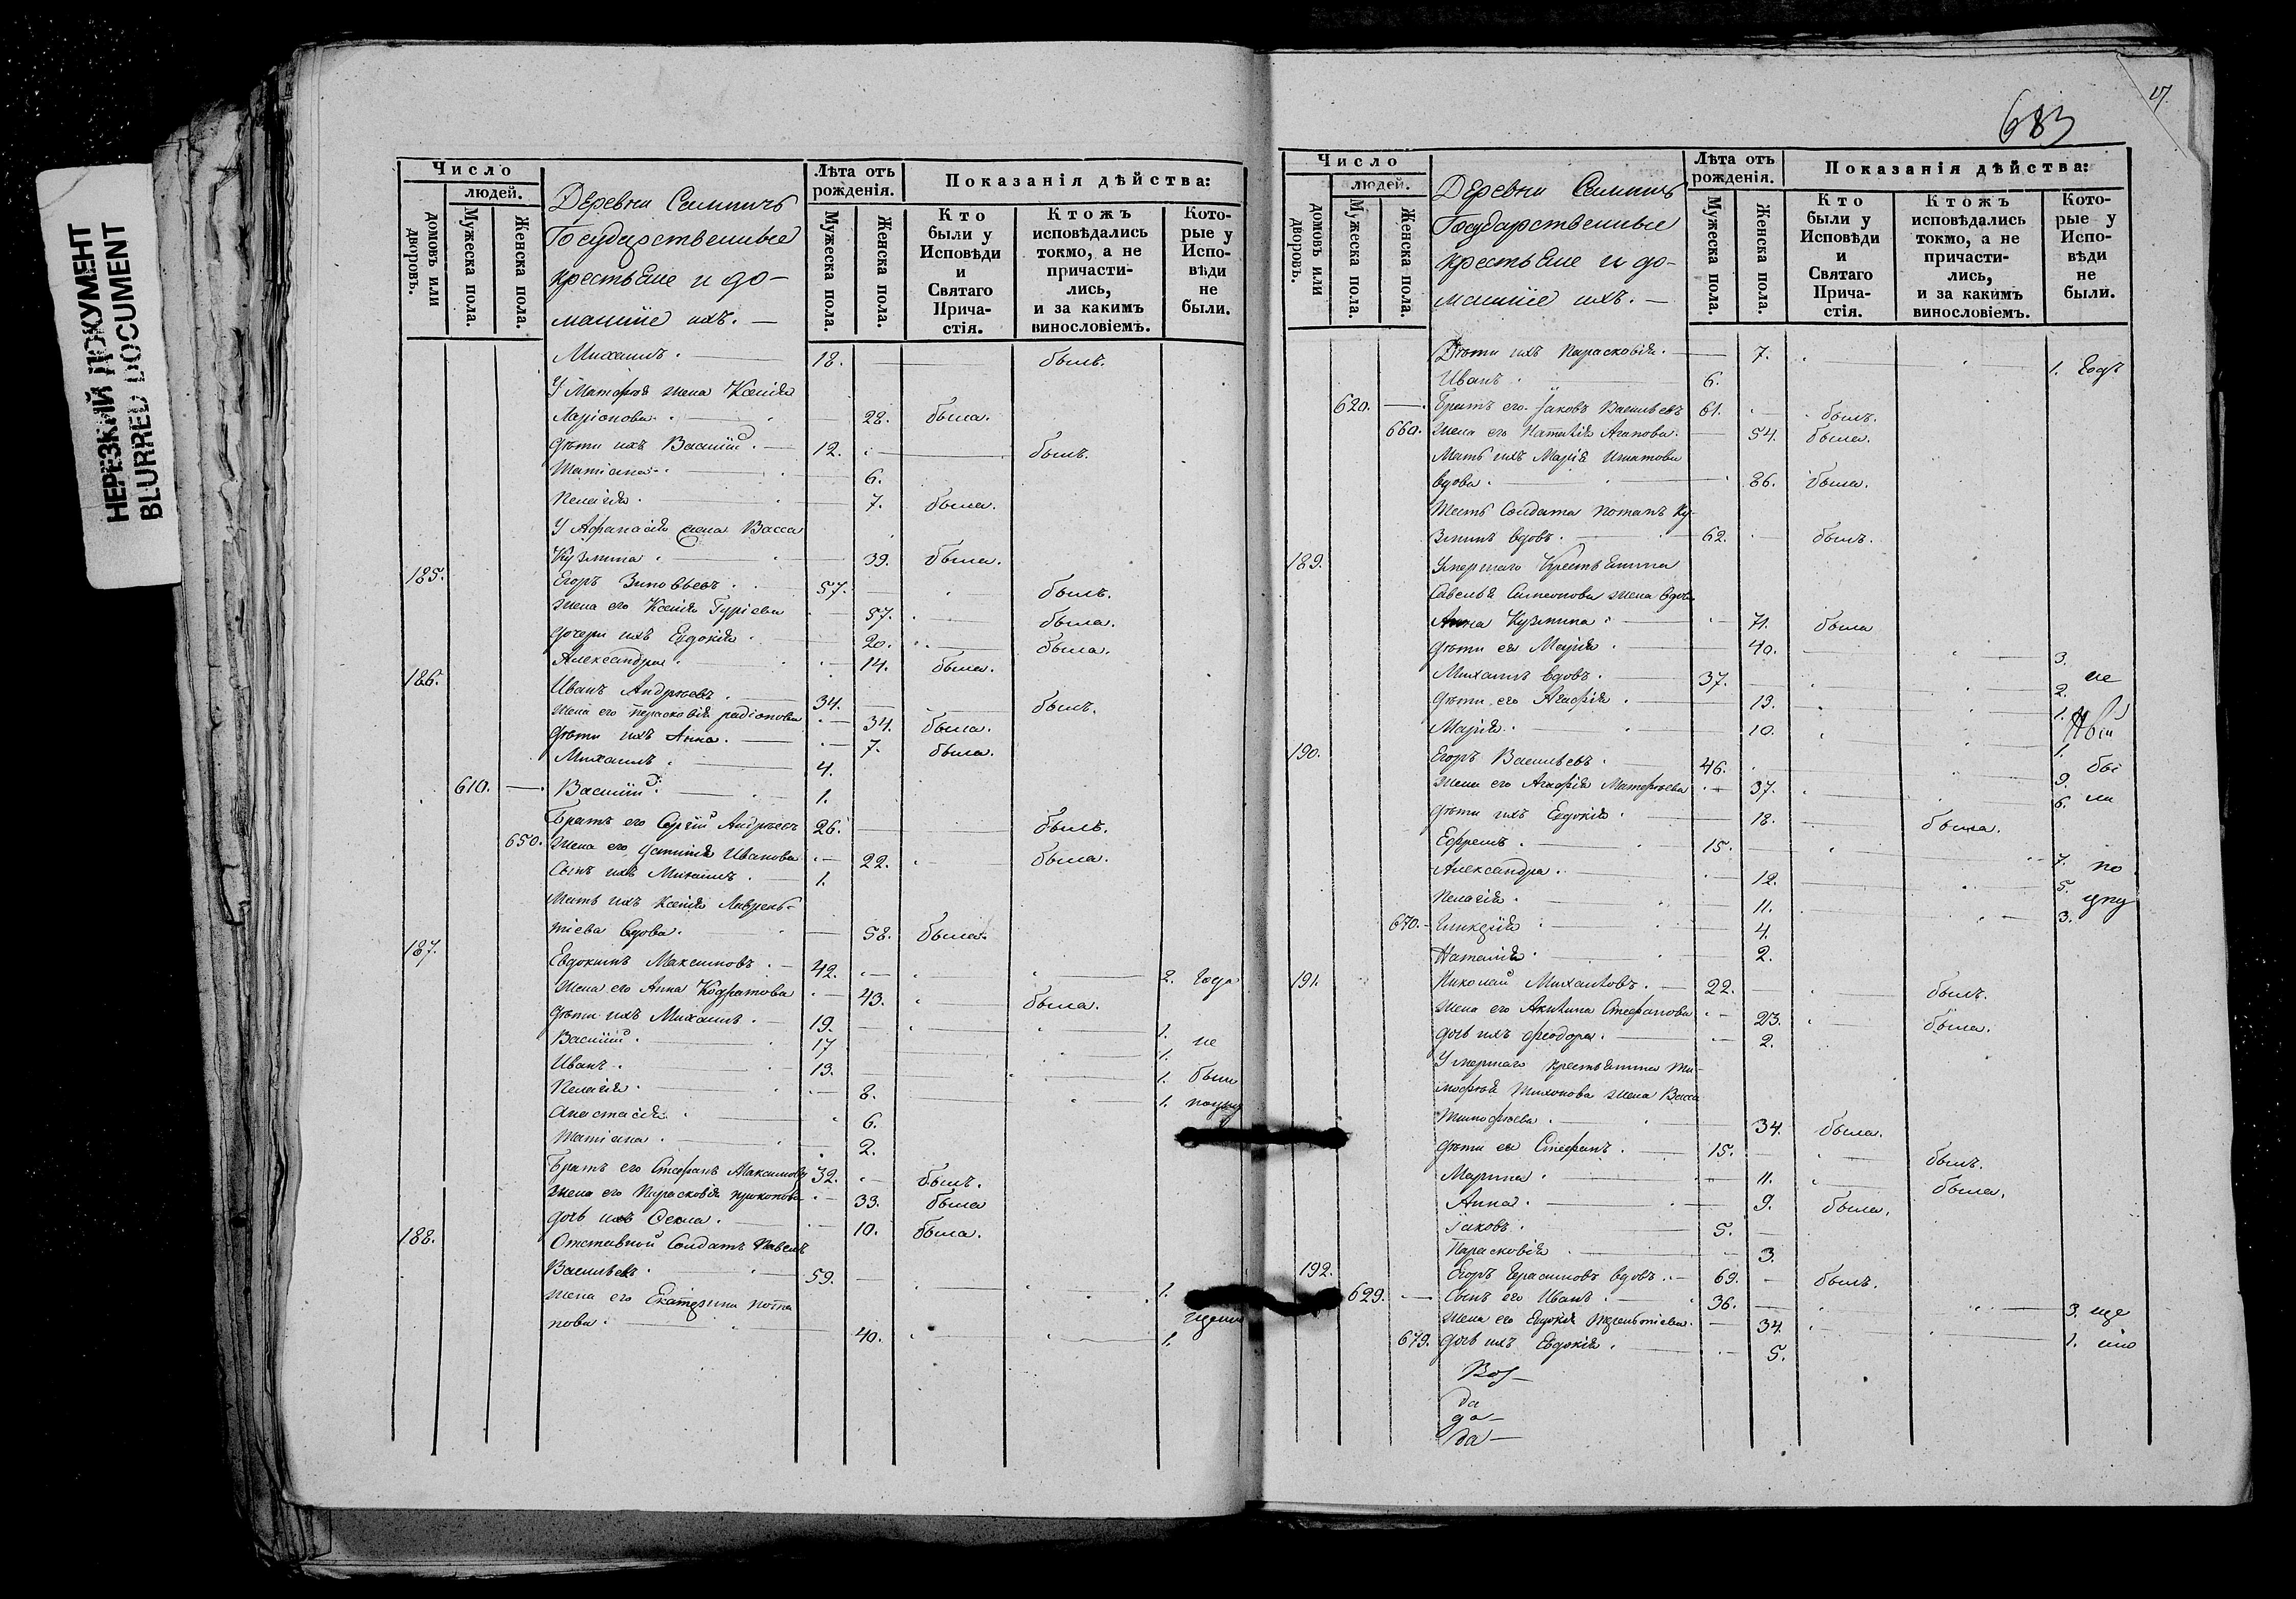 НЕРЕЗКИЙ ДОКУМЕНТ
BLURRED DOCUMENT
Число
людей.
домовъ или дворовъ.
Мужеска пола.
Женска пола.
Деревни
Государственные
крестьяне и до-
машніе ихъ. —
Лѣта отъ рожденія.
Мужеска пола.
Женска пола.
Показанія дѣйства:
Кто были у Исповѣди и Святаго Прича-стія.
Ктожъ исповѣдались токмо, а не причасти-лись, и за какимъ винословіемъ.
Кото-рые у Испо-вѣди не были.
Михаилъ. 18. былъ.
У Матфея жена Ксенія
Ларіонова. 28. была.
дѣти ихъ Василій. 12. былъ.
Татіана. 6.
Пелагія. 7. была.
У Афанасія жена Васса
Кузмина. 39. была.
185. Егоръ Зиновьевъ. 57. былъ.
жена его Ксенія Гуріева 57. была.
дочери ихъ Евдокія. 20. была.
Александра. 14. была.
186. Иванъ Андреевъ. 34. былъ.
жена его Парасковія радіонова 34. была.
дѣти ихъ Анна. 7. была.
Михаилъ. 4.
610. Василій. 1.
Братъ его Сергій Андреевъ 26. былъ.
650. жена его Устинія Иванова 22. была.
Сынъ ихъ Михаилъ. 1.
Мать ихъ Ксенія Лаврень-
тіева вдова. 58. была.
187. Евдокимъ Максимовъ. 42. 2. года
жена его Анна Кодратова 43. была.
дѣти ихъ Михаилъ. 19. 1.
Василій. 17 1. не
Иванъ. 13. 1. были
Пелагія. 8. 1.
Анастасія. 6.
Татіана. 2.
Братъ его Стефанъ Максимовъ 32. былъ.
жена его Парасковія прокопова 33. была
дочь ихъ Фекла. 10. была.
188. Отставной Солдатъ Павелъ
Васильевъ. 59. 1.
жена его Екатерина Пота-
пова. 40. 1.
17.
683
Число
людей.
домовъ или дворовъ.
Мужеска пола.
Женска пола.
Деревни
Государственные
крестьяне и до-
машніе ихъ. —
Лѣта отъ рожденія.
Мужеска пола.
Женска пола.
Показанія дѣйства:
Кто были у Исповѣди и Святаго Прича-стія.
Ктожъ исповѣдались токмо, а не причасти-лись, и за какимъ винословіемъ.
Кото-рые у Испо-вѣди не были.
Дѣти ихъ Парасковія. 7. 1. годъ
Иванъ. 6.
620. Братъ его Іаковъ Васильевъ 61. былъ.
660. жена его Наталія Агапова. 54. была.
Мать ихъ Марія Игнатова
вдова. 86. была.
Тесть Солдата Потапъ Ку-
зминъ вдовъ. 62. былъ.
189. Умершаго Крестьянина
Савелья Симеонова жена вдова
Анна Кузмина 71. была
дѣти ея Марія. 40. 3.
Михаилъ вдовъ. 37. 2. не
дѣти его Агафія. 13. 1.
Марія. 10. 1.
190. Егоръ Васильевъ. 46. 9. бы
жена его Агафія Матфеева 37. 6. ли
дѣти ихъ Евдокія. 18. была.
Ефремъ. 15. 7. по
Александра. 12. 5.
Пелагія. 11. 3.
670. Гликерія. 4.
Наталія. 2.
191. Николай Михайловъ. 22. былъ.
жена его Акилина Стефанова 23. была.
дочь ихъ Феодора. 2.
Умершаго крестьянина Ти-
мофея Тихонова жена Васса
Тимофеева. 34. была.
дѣти ея Стефанъ. 15. былъ.
Марина. 11. была.
Анна. 9. была.
Іаковъ. 5.
Парасковія. 3.
192. Егоръ Герасимовъ вдовъ. 69. былъ.
629. Сынъ его Иванъ. 36. 3.
жена его Евдокія Терентіева. 34. 1.
679. дочь ихъ Евдокія. 5.